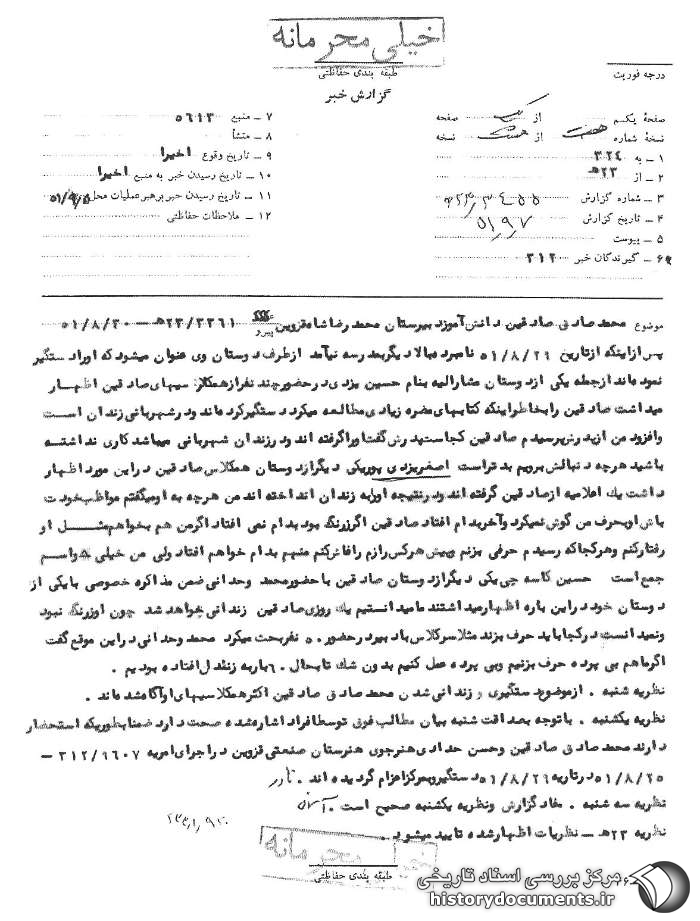 خیلی محرمانه
طبقه بندی حفاظتی
گزارش خبر
درجه فوریت
صفحهٔ یکم از یک صفحه
نسخهٔ شماره هفت از هشت نسخه
۱ – به ۳۲۴
۲ – از ۲۳ﻫ
۳ – شماره گزارش
۴ – تاریخ گزارش ۵۱/۹/۷
۵ – پیوست
۶ – گیرندگان خبر ۳۱۲
۷ – منبع ۵۶۱۳
۸ – منشأ
۹ – تاریخ وقوع اخیرا
۱۰ – تاریخ رسیدن خبر به منبع اخیرا
۱۱ – تاریخ رسیدن خبر برهبر عملیات محل ۵۱/۹/۵
۱۲ – ملاحظات حفاظتی
موضوع محمد صادق صادقین دانش آموز دبیرستان محمد رضا شاه قزوین پیرو ۲۳/۳۳۶۱ﻫ – ۵۱/۸/۳۰
پس از اینکه از تاریخ ۵۱/۸/۲۹ نامبرد ببالا دیگر بمدرسه نیامد از طرف دوستان وی عنوان میشود که او را دستگیر
نموده اند از جمله یکی از دوستان مشارالیه بنام حسین یزدی در حضور چند نفر از همکلاسیهای صادقین اظهار
میداشت صادقین را بخاطر اینکه کتابهای مضره زیادی مطالعه میکرد دستگیر کرده اند و در شهربانی زندان است
وافزود من از پدرش پرسیدم صادقین کجاست پدرش گفت اورا گرفته اند و در زندان شهربانی میباشد کاری نداشته
باشید هرچه دنبالش برویم بدتر است اصغر یزدی پور یکی دیگر از دوستان همکلاس صادقین در این مورد اظهار
داشت یك اعلامیه از صادقین گرفته اند و در نتیجه اورا به زندان انداخته اند من هرچه به او میگفتم مواظب خودت
باش او بحرف من گوش نمیکرد و آخر بدام افتاد صادقین اگر زرنگ بود بدام نمی افتاد اگر من هم بخواهم مثل او
رفتار کنم و هر کجا که رسیدم حرفی بزنم و پیش هر کس رازم را فاش کنم منهم بدام خواهم افتاد ولی من خیلی حواسم
جمع است حسین کاسه چی یکی دیگر از دوستان صادقین با حضور محمد وحدانی ضمن مذاکره خصوصی با یکی از
دوستان خود در این باره اظهار میداشتند ما میدانستیم یك روزی صادقین زندانی خواهد شد چون او زرنگ نبود
و نمیدانست در کجا باید حرف بزند مثلا سر کلاس با دبیر در حضور ۵۰ نفر بحث میکرد محمد وحدانی در این موقع گفت
اگر ما هم بی پرده حرف بزنیم وبی پرده عمل کنیم بدون شك تا بحال ۶ بار به زندان افتاده بودیم .
نظریه شنبه . از موضوع دستگیری و زندانی شدن محمد صادق صادقین اکثر همکلاسیهای او آگاه شده اند .
نظریه یکشنبه . با توجه بصداقت شنبه بیان مطالب فوق توسط افراد اشاره شده صحت دارد ضمنا بطوریکه استحضار
دارند محمد صادق صادقین وحسن حدادی هنرجوی هنرستان صنعتی قزوین در اجرای امریه ۳۱۲/۹۶۰۷ –
۵۱/۸/۲۵ در تاریه ۵۱/۸/۲۹ دستگیر و بمرکز اعزام گردیده اند . نادر
نظریه سه شنبه . مفاد گزارش ونظریه یکشنبه صحیح است .
نظریه ۲۳ﻫ – نظریات اظهار شده تایید میشود .
خیلی محرمانه
طبقه بندی حفاظتی
مرکز بررسی اسناد تاریخی
historydocuments.ir